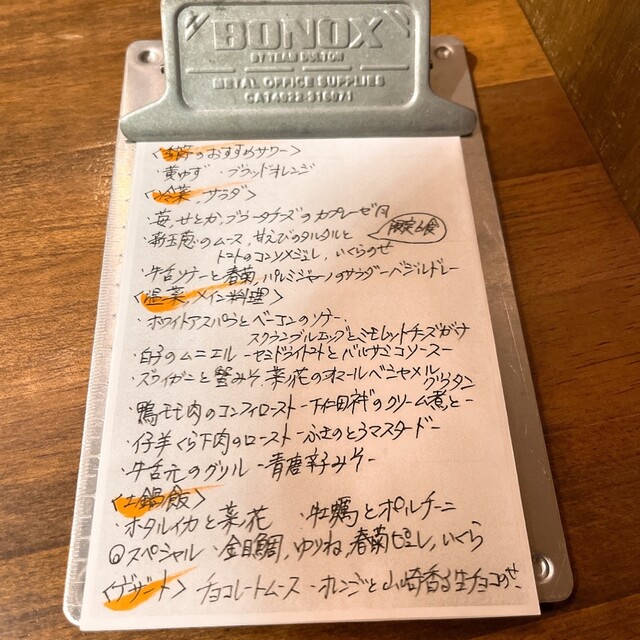 BONOX
BY TEAM DULTON
METAL OFFICE SUPPLIES
CAT4922-316971
<季節のおすすめサワー>
・黄ゆず ・ブラッドオレンジ
<冷菜、サラダ>
・苺、せとか、ブラータチーズのカプレーゼ風
新玉葱のムース、甘えびのタルタルと 限定6食
トマトのコンソメジュレ、いくらのせ
・牛舌ソテーと春菊、パルミジャーノのサラダ-バジルドレ-
<温菜、メイン料理>
・ホワイトアスパラとベーコンのソテー
スクランブルエッグとミモレットチーズがけ
・白子のムニエル-セミドライトマトとバルサミコソース-
・ズワイガニと蟹みそ、菜の花のオマールベシャメル
グラタン
・鴨モモ肉のコンフィロースト-下仁田ネギのクリーム煮と-
・仔羊くら下肉のロースト-ふきのとうマスタード-
・牛舌元のグリル-青唐辛子みそ-
<土鍋飯>
・ホタルイカと菜の花 ・牡蠣とポルチーニ
◎スペシャル・金目鯛、ゆりね、春菊ピュレ、いくら
<デザート> チョコレートムース-オレンジと山崎香る生チョコのせ-